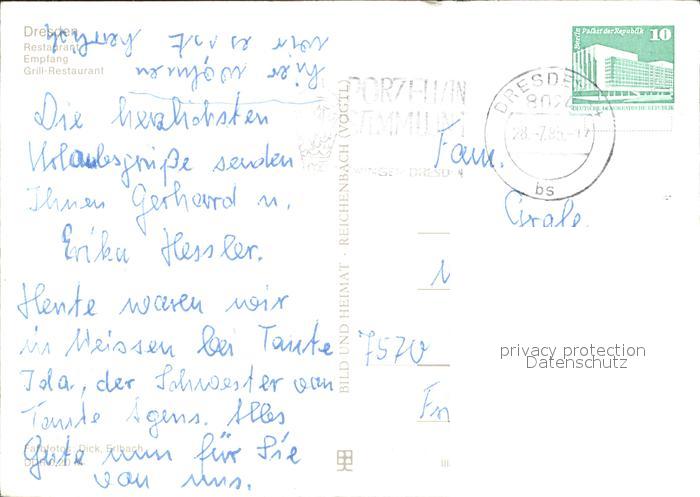 Dresden
Restaurant
Empfang
Grill-Restaurant
Hier wohnen
wir es ist herrlich
Die herzlichsten
Urlaubsgrüße senden
Ihnen Gerhard u.
Erika Hessler.
Heute waren wir
in Meissen bei Tante
Ida, der Schwester von
Tante Agens. Alles
Gute nun für Sie
von uns.
Farbfotos: Dick, Erlbach
BILD UND HEIMAT · REICHENBACH (VOGTL)
PORZELLAN
SAMMLUNG
ZWINGER DRESDEN
DRESDEN
8020
28.-7.85.-17
bs
Berlin Palast der Republik 10
DEUTSCHE DEMOKRATISCHE REPUBLIK
Fam.
7570
privacy protection
Datenschutz
III